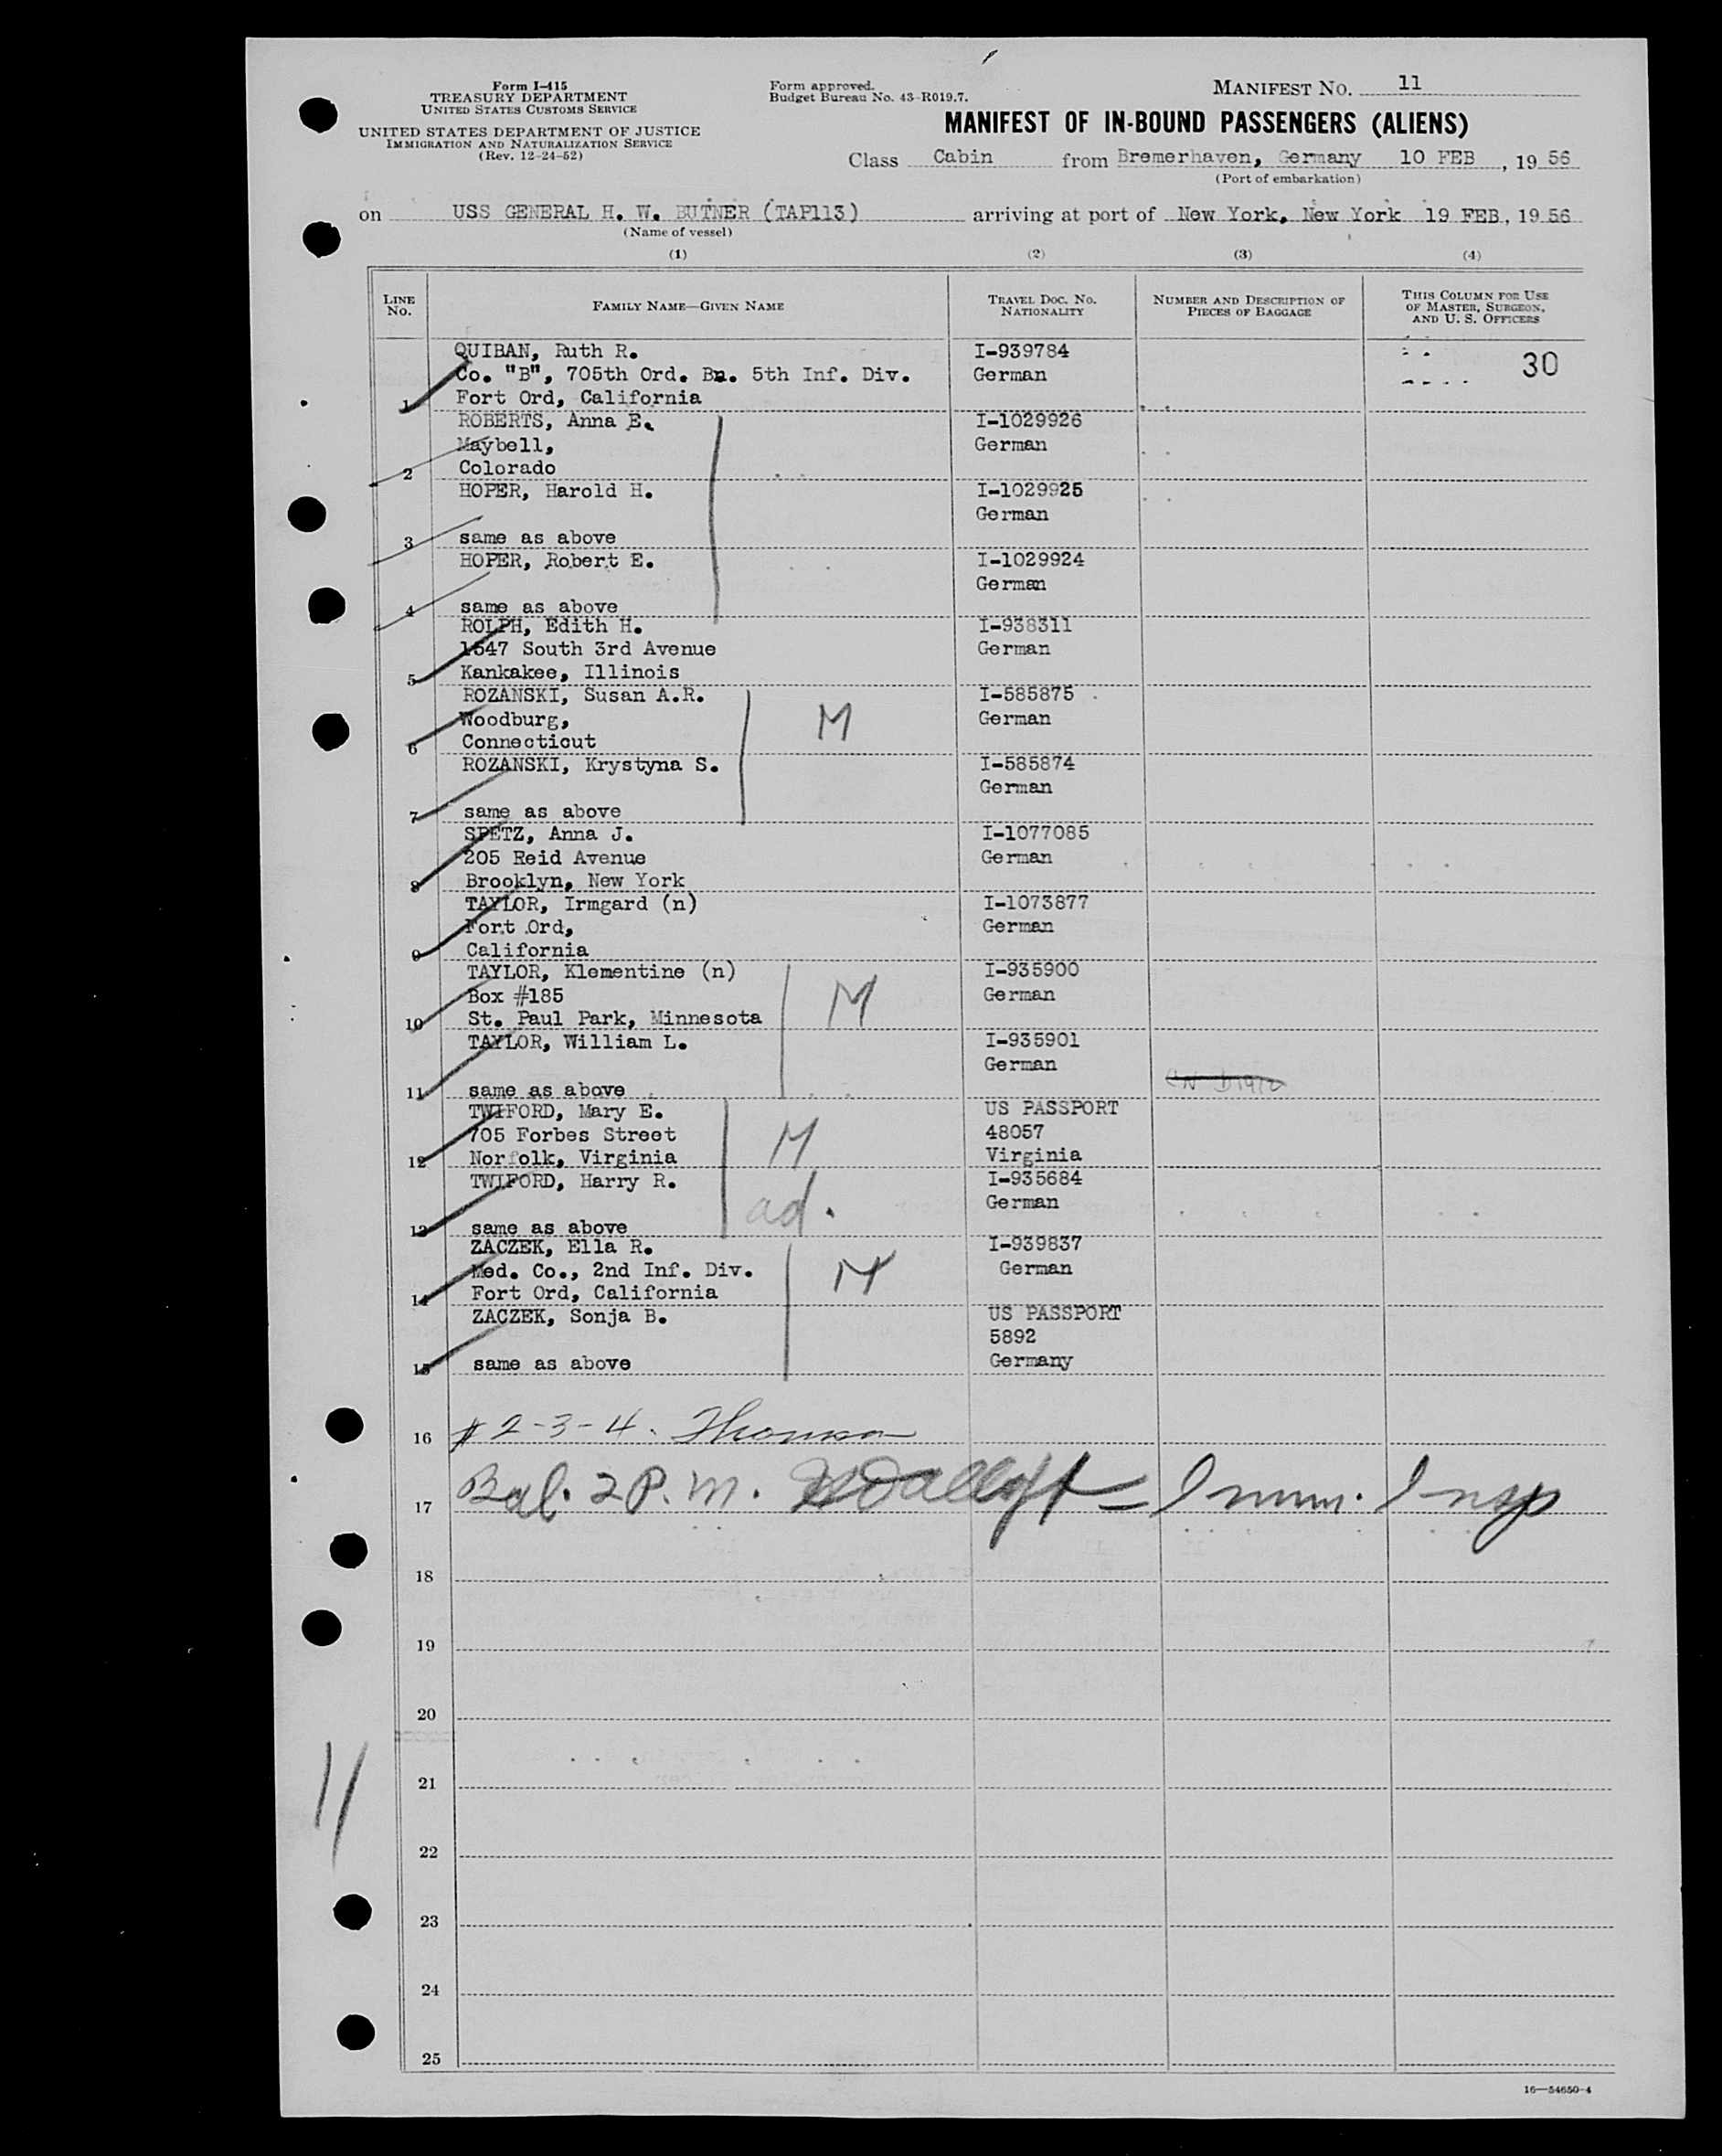 Form I-415
TREASURY DEPARTMENT
UNITED STATES CUSTOMS SERVICE
UNITED STATES DEPARTMENT OF JUSTICE
IMMIGRATION AND NATURALIZATION SERVICE
(Rev. 12-24-52)
Form approved.
Budget Bureau No. 43-R019.7.
MANIFEST NO. 11
MANIFEST OF IN-BOUND PASSENGERS (ALIENS)
Class Cabin from Bremerhaven, Germany 10 FEB, 19 56
(Port of embarkation)
on USS GENERAL H. W. BUTNER (TAP113) arriving at port of New York, New York 19 FEB, 19 56
(Name of vessel)
(1) (2) (3) (4)
LINE No. FAMILY NAME—GIVEN NAME TRAVEL DOC. NO. NATIONALITY NUMBER AND DESCRIPTION OF PIECES OF BAGGAGE THIS COLUMN FOR USE OF MASTER, SURGEON, AND U. S. OFFICERS
QUIBAN, Ruth R. I-939784 30
Co. "B", 705th Ord. Bn. 5th Inf. Div. German
1 Fort Ord, California
ROBERTS, Anna E. I-1029926
Maybell, German
2 Colorado
HOPER, Harold H. I-1029925
German
3 same as above
HOPER, Robert E. I-1029924
German
4 same as above
ROLPH, Edith H. I-938311
1547 South 3rd Avenue German
5 Kankakee, Illinois
ROZANSKI, Susan A.R. I-585875
Woodburg, M German
6 Connecticut
ROZANSKI, Krystyna S. I-585874
German
7 same as above
SPETZ, Anna J. I-1077085
205 Reid Avenue German
8 Brooklyn, New York
TAYLOR, Irmgard (n) I-1073877
Fort Ord, German
9 California
TAYLOR, Klementine (n) I-935900
Box #185 M German
10 St. Paul Park, Minnesota
TAYLOR, William L. I-935901
German
11 same as above
TWIFORD, Mary E. US PASSPORT
705 Forbes Street M 48057
12 Norfolk, Virginia Virginia
TWIFORD, Harry R. I-935684
ad. German
13 same as above
ZACZEK, Ella R. I-939837
Med. Co., 2nd Inf. Div. M German
14 Fort Ord, California
ZACZEK, Sonja B. US PASSPORT
5892
15 same as above Germany
16 # 2-3-4. Thomson
17 Bal. 2 P.M. Imm. Insp
18
19
20
21
11
22
23
24
25
16—54650-4